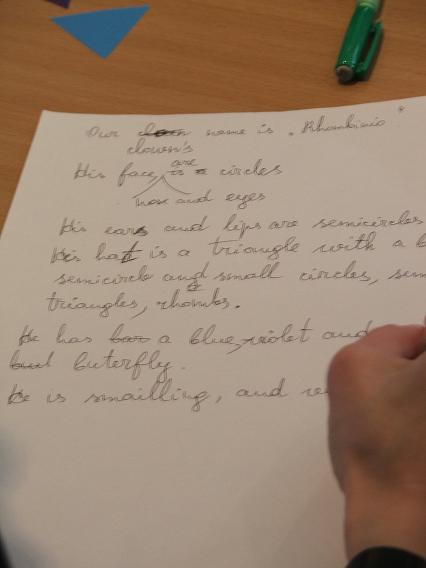 Our clown name is "Rhombinio"
clown's
His face is a circles
are
nose and eyes
His ears and lips are semicircles
His hat is a triangle with a
semicircle and small circles,
triangles, rhombs.
He has har a blue, violet and
buterfly.
He is smailling, and